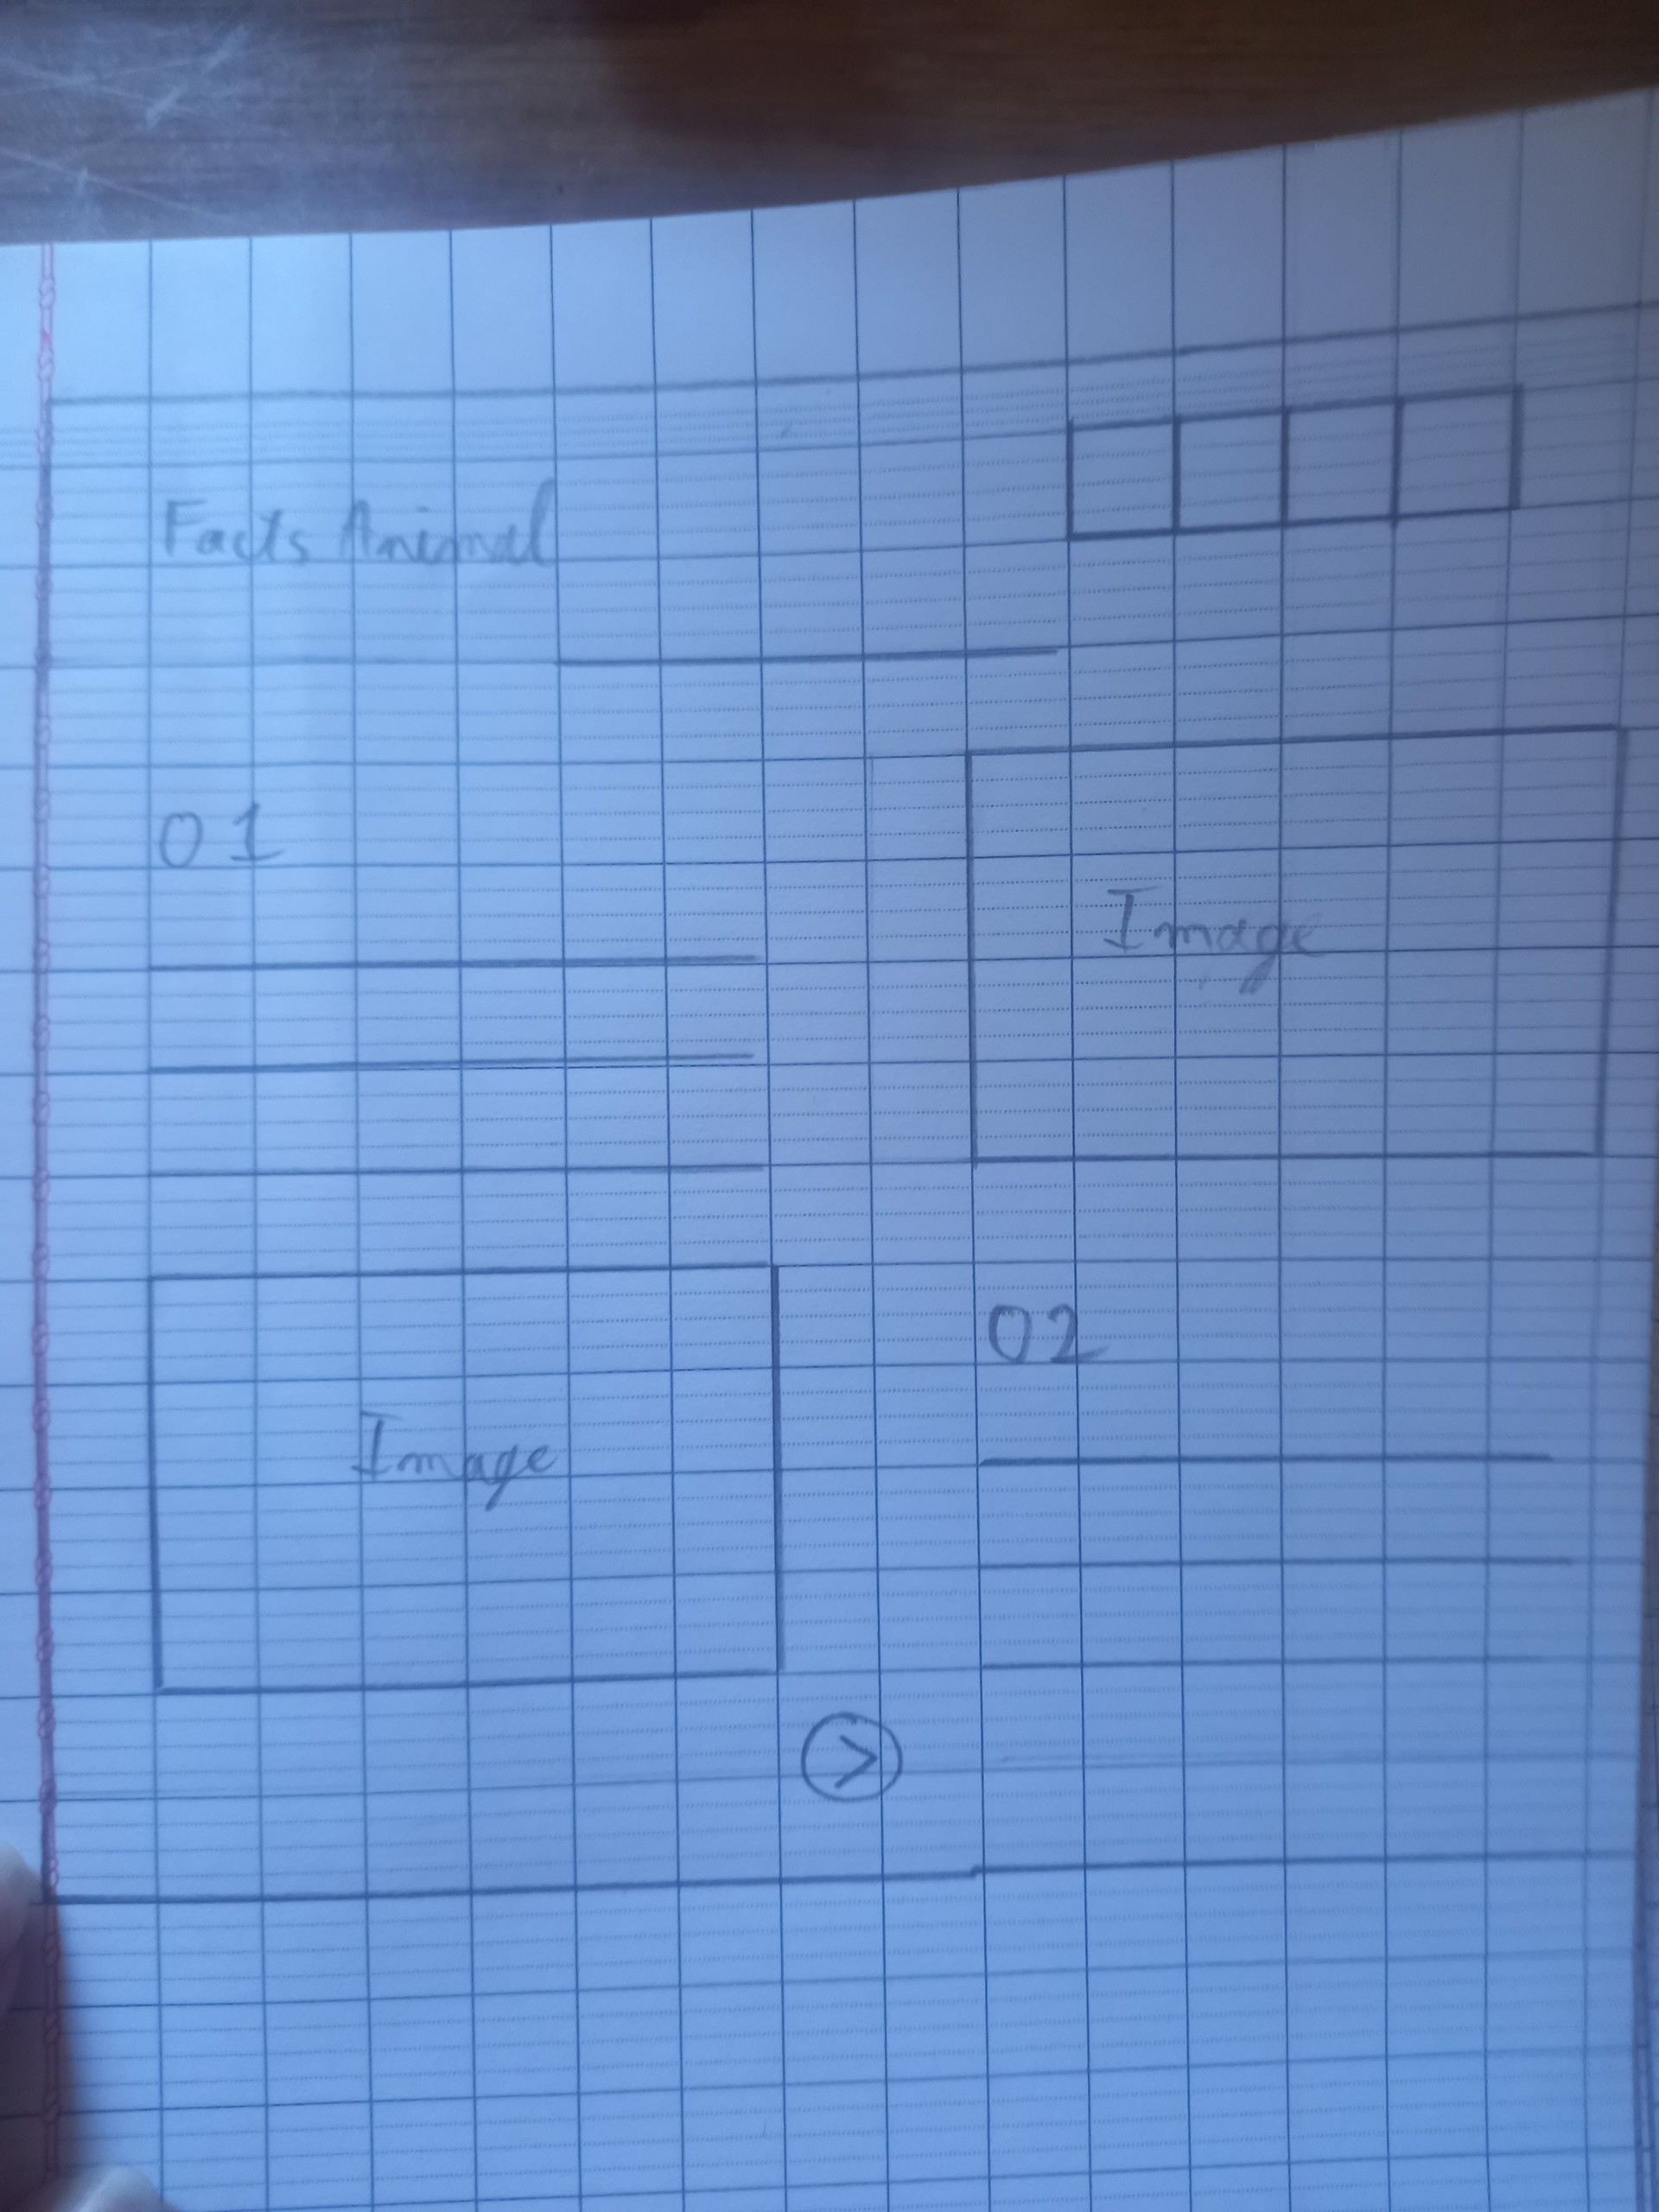 Facts Animal
01
Image
Image
02
>